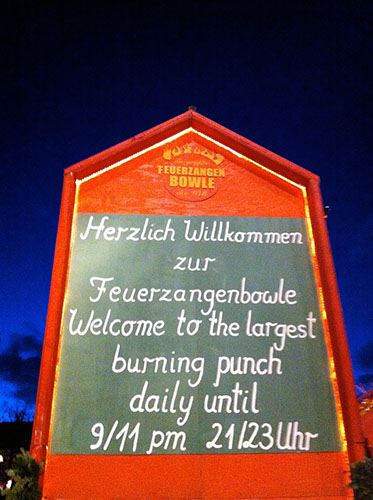 FEUERZANGEN
BOWLE
Herzlich Willkommen
zur
Feuerzangenbowle
Welcome to the largest
burning punch
daily until
9/11 pm 21/23 Uhr